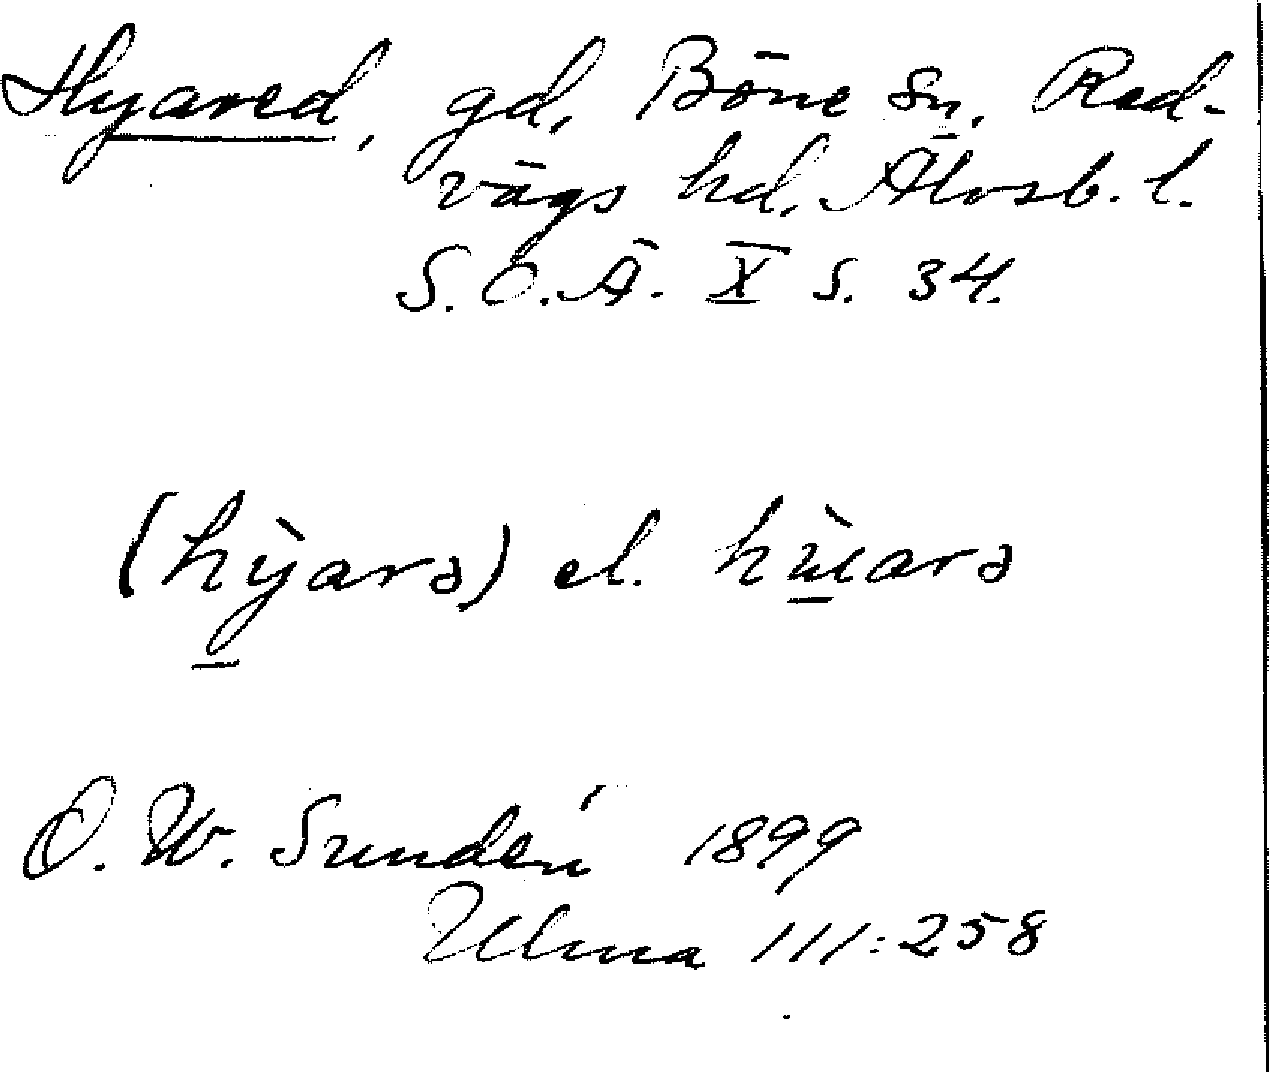 Hyared, gd, Böne sn, Red-
vägs hd, Älvsb. l.
S.O.Ä. X s. 34.
(hỳ̠arə) el. hù̠arə
O. W. Sundén 1899
Ulma 111:258